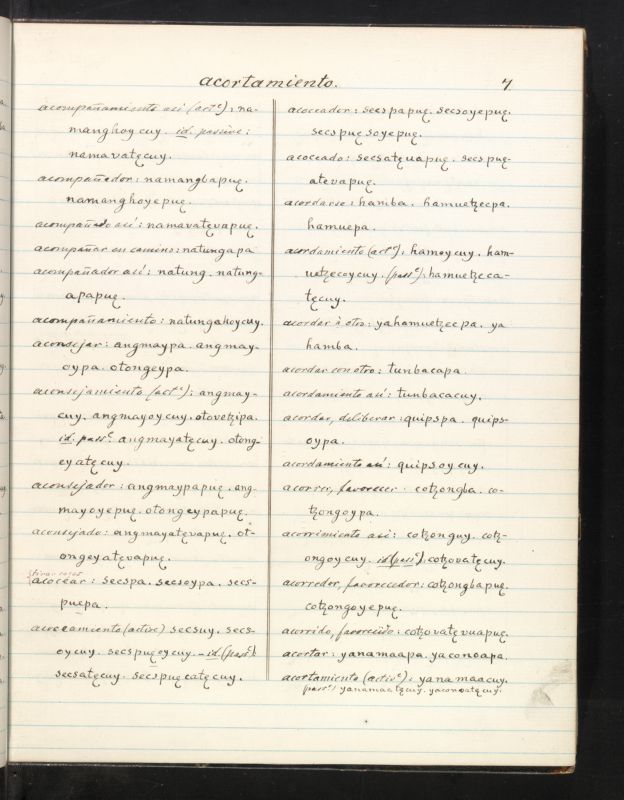 acortamiento. 7
acompañamiento asi (act.e): na-
manghoy cuy. id. passive:
namavatęcuy.
acompañador: namangbapuę.
namanghoyepuę.
acompañado así: namavatęvapuę.
acompañar en camino: natungapa
acompañador así: natung. natung-
apapuę.
acompañamiento: natungahoycuy.
aconsejar: angmaypa. angmay-
oypa. otongeypa.
aconsejamiento (act.e): angmay-
cuy. angmayoycuy. otovetzipa.
id: pass.e angmayatęcuy. otong-
eyatęcuy.
aconsejador: angmaypapuę. ang-
mayoyepuę. otongeypapuę.
aconsejado: angmayatęvapuę. ot-
ongeyatęvapuę.
acocear: secspa. secsoypa. secs-
puępa.
acoceamiento (active) secsuy. secs-
oycuy. secspuęoycuy. - id. (pass.e):
secsatęcuy. secspuęcatęcuy.
acoceador: secspapuę. secsoyepuę.
secspuęsoyepuę.
acoceado: secsatęuapuę. secspuę-
atevapuę.
acordarse: hamba. hamuetzecpa.
hamuepa.
acordamiento (act.e): hamoycuy. ham-
uetzecoycuy. (pass.e): hamuetzeca-
tęcuy.
acordar à otro: yahamuetzecpa. ya
hamba.
acordar con otro: tunbacapa.
acordamiento así: tunbacacuy.
acordar, deliberar: quipspa. quips-
oypa.
acordamiento así: quipsoycuy.
acorrer, favorecer: cotzongba. co-
tzongoypa.
acorrimiento asi: cotzonguy. cotz-
ongoycuy. id (pass.e). cotzovatęcuy.
acorredor, favorecedor: cotzongbapuę.
cotzongoyepuę.
acorrido, favorecido: cotzovatęvuapuę.
acortar: yanamaapa. yaconoapa.
acortamiento (activ.e): yanamaacuy.
(pass.e) yanamaatęcuy. yaconoatęcuy.